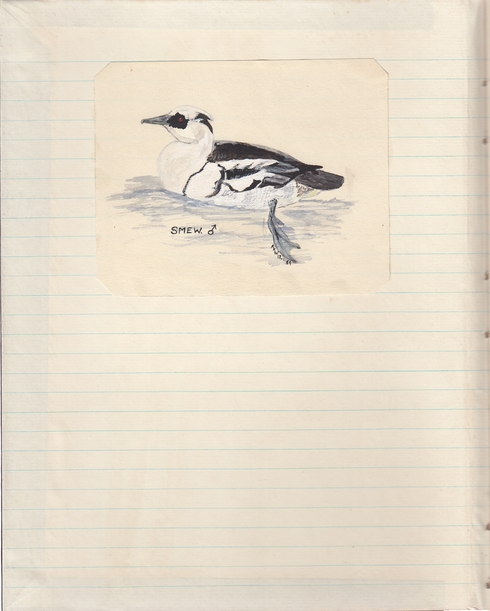 SMEW. ♂